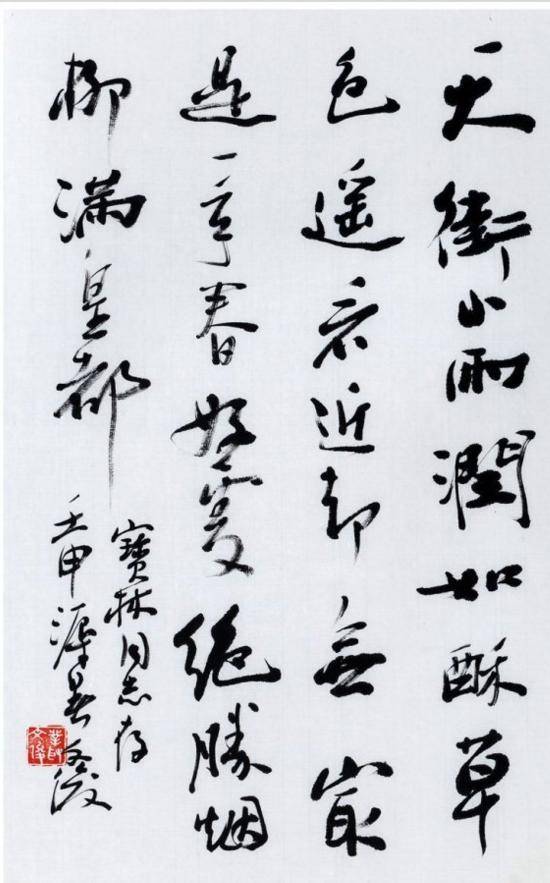 天街小雨潤如酥草
色遥看近却無最
是一年春好處绝勝烟
柳满皇都
寶林同志存
壬申